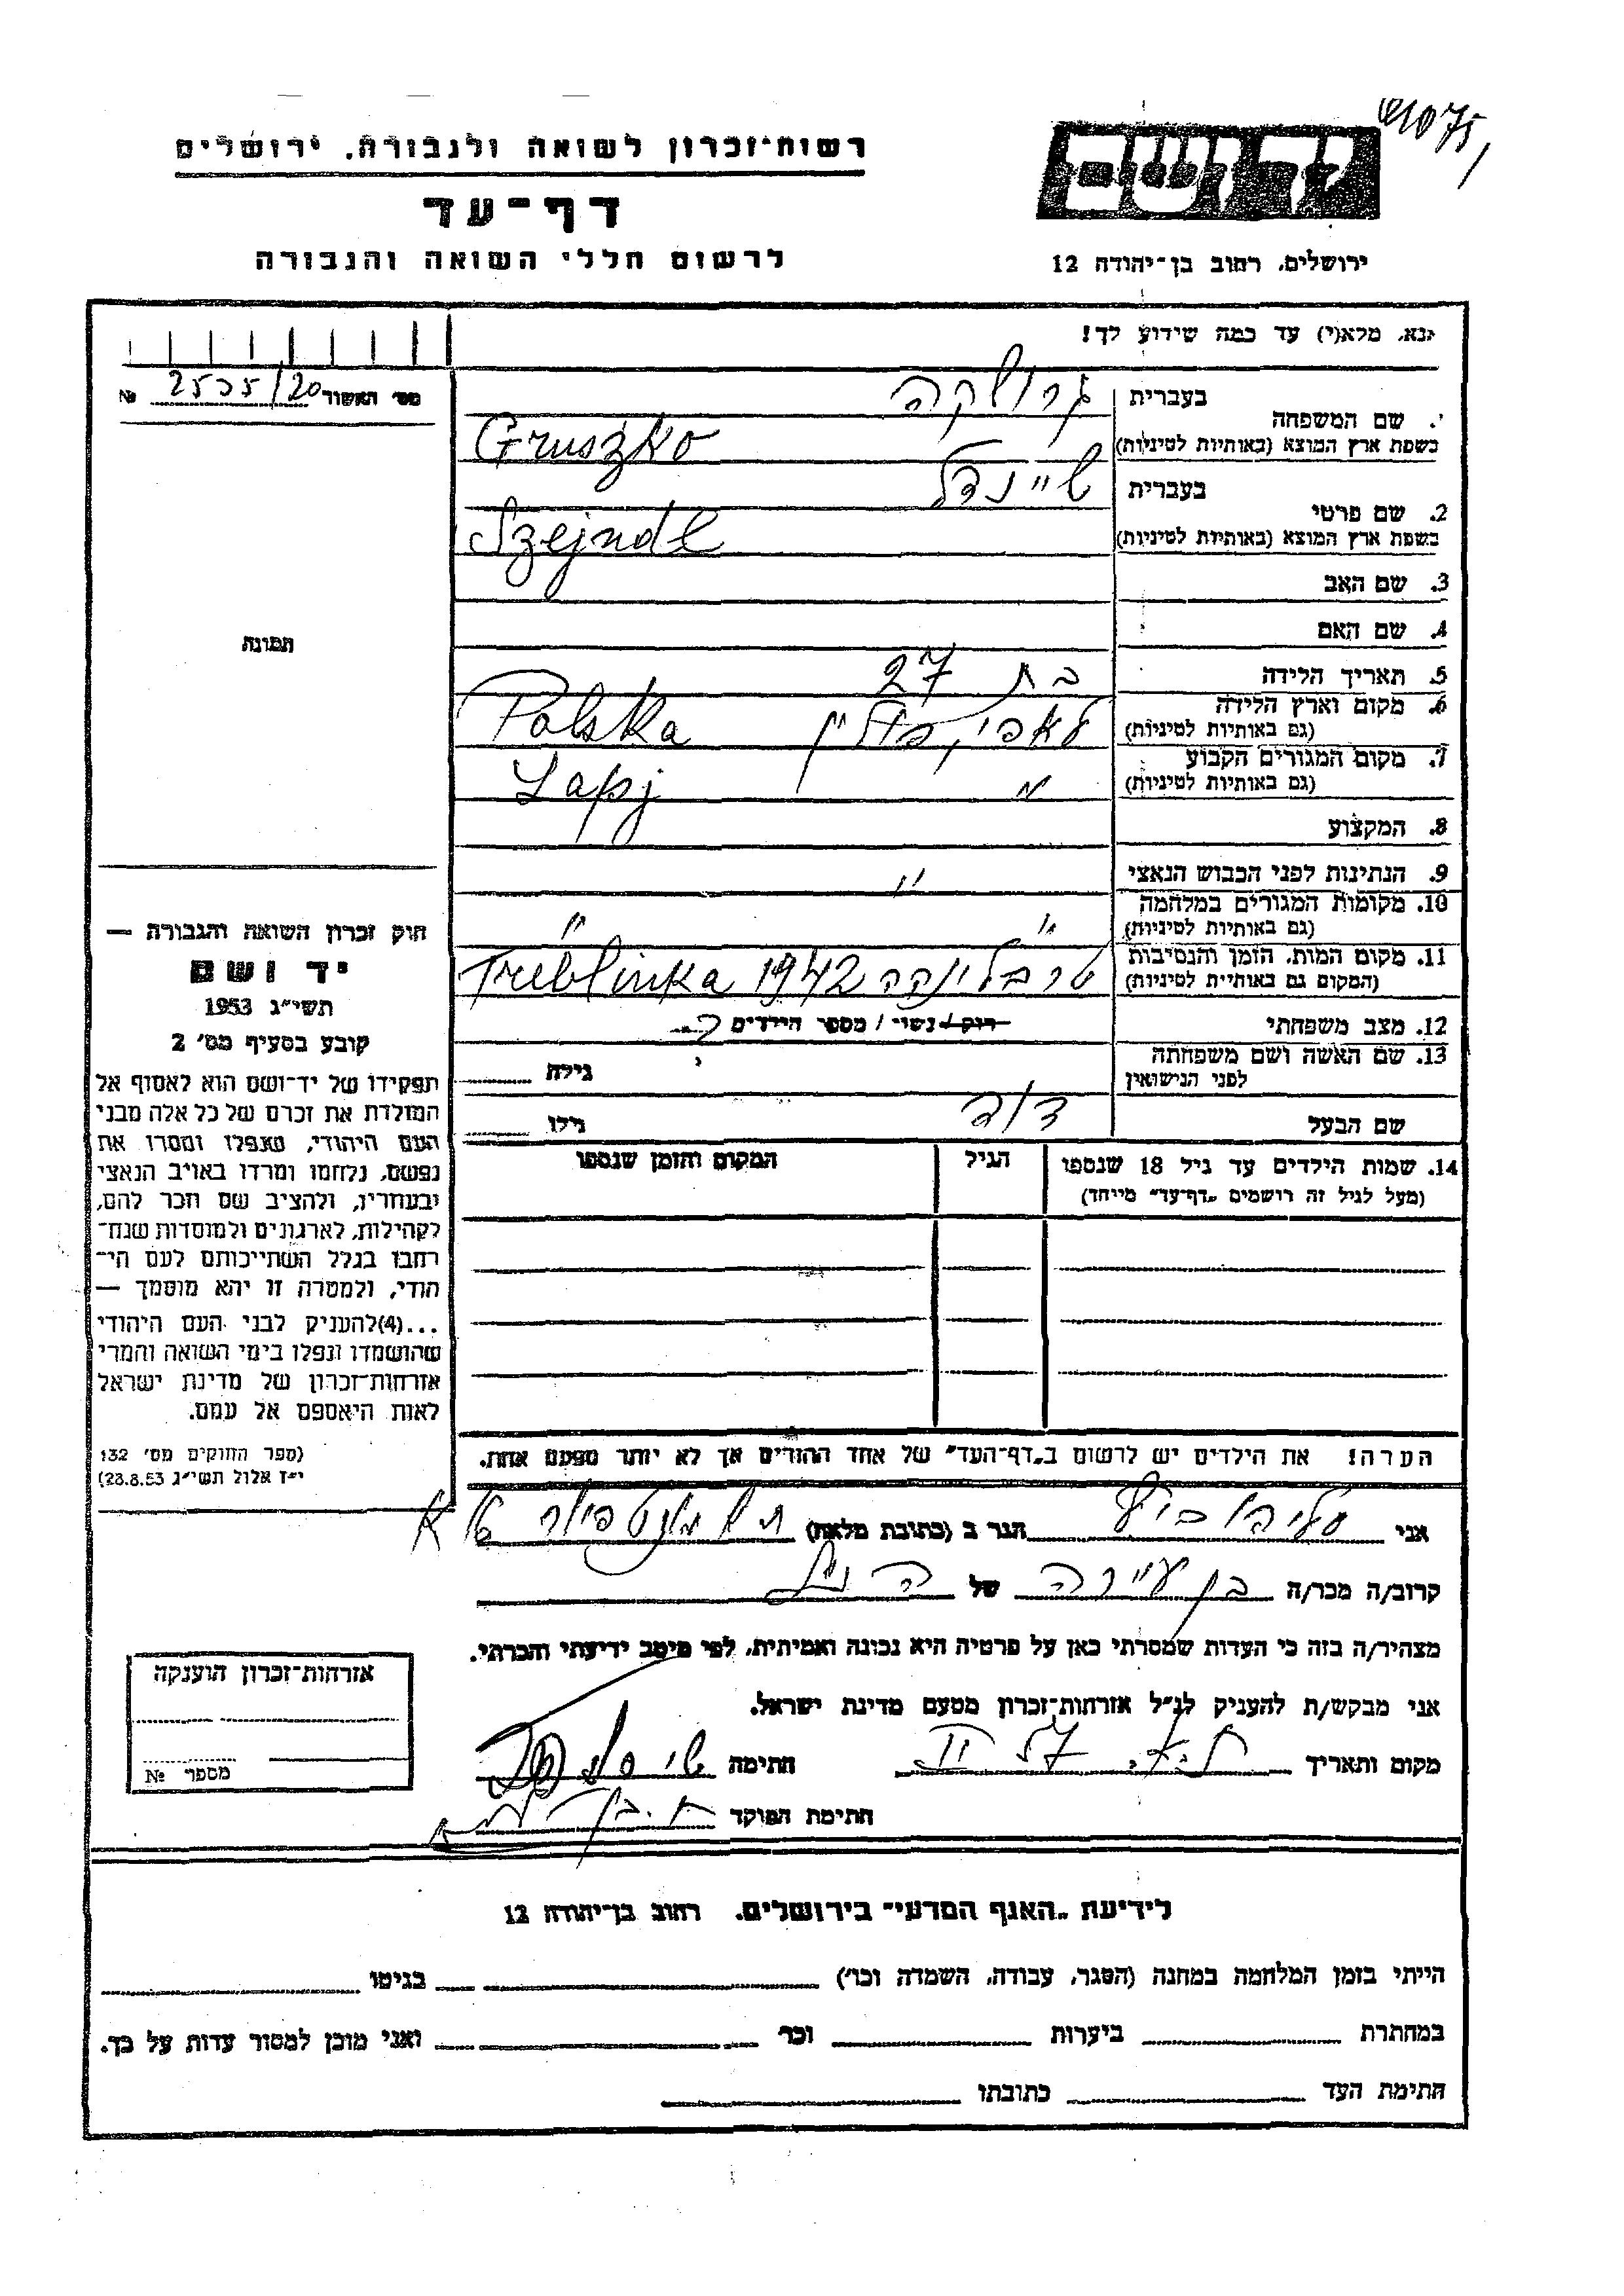 רשות־זכרון לשואה ולגבורה, ירושלים
דף־עד
לרשום חללי השואה והגבורה
ידושם
ירושלים, רחוב בן־יהודה 12
נא, מלא(י) עד כמה שידוע לך!
מס' האשור 2535/20 №
בעברית גרושקה
1. שם המשפחה
בשפת ארץ המוצא (באותיות לטיניות) Gruszko
בעברית שיינדל
2. שם פרטי
בשפת ארץ המוצא (באותיות לטיניות) Szejndl
3. שם האב
4. שם האם
תמונה
5. תאריך הלידה בת 27
6. מקום וארץ הלידה
(גם באותיות לטיניות) לאפי, פולין Polska
7. מקום המגורים הקבוע
(גם באותיות לטיניות) " Lapj
8. המקצוע
9. הנתינות לפני הכבוש הנאצי "
10. מקומות המגורים במלחמה
(גם באותיות לטיניות) " "
11. מקום המות, הזמן והנסיבות
(המקום גם באותיות לטיניות) טרבלינקה 1942 Treblinka
12. מצב משפחתי רוק / נשוי / מספר הילדים ?
13. שם האשה ושם משפחתה
לפני הנישואין גילה
שם הבעל דוד גילו
14. שמות הילדים עד גיל 18 שנספו
(מעל לגיל זה רושמים „דף־עד" מייחד)
הגיל
המקום והזמן שנספו
הערה! את הילדים יש לרשום ב„דף־העד" של אחד ההורים אך לא יותר מפעם אחת.
חוק זכרון השואה והגבורה —
יד ושם
תשי"ג 1953
קובע בסעיף מס' 2
תפקידו של יד־ושם הוא לאסוף אל
המולדת את זכרם של כל אלה מבני
העם היהודי, שנפלו ומסרו את
נפשם, נלחמו ומרדו באויב הנאצי
ובעוזריו, ולהציב שם וזכר להם,
לקהילות, לארגונים ולמוסדות שנח־
רבו בגלל השתייכותם לעם הי־
הודי, ולמטרה זו יהא מוסמך —
...(4) להעניק לבני העם היהודי
שהושמדו ונפלו בימי השואה והמרי
אזרחות־זכרון של מדינת ישראל
לאות היאספם אל עמם.
(ספר החוקים מס' 132
י"ז אלול תשי"ג 28.8.53)
אני הגר ב (כתובת מלאה)
קרוב/ה מכר/ה בן עיירה של הנ"ל
מצהיר/ה בזה כי העדות שמסרתי כאן על פרטיה היא נכונה ואמיתית, לפי מיטב ידיעתי והכרתי.
אני מבקש/ת להעניק לנ"ל אזרחות־זכרון מטעם מדינת ישראל.
מקום ותאריך ת"א, 57 II חתימה
חתימת הפוקד
אזרחות־זכרון הוענקה
מספר №
לידיעת „האגף המדעי" בירושלים, רחוב בן־יהודה 12
הייתי בזמן המלחמה במחנה (הסגר, עבודה, השמדה וכו') בגיטו
במחתרת ביערות וכו' ואני מוכן למסור עדות על כך.
חתימת העד כתובתו